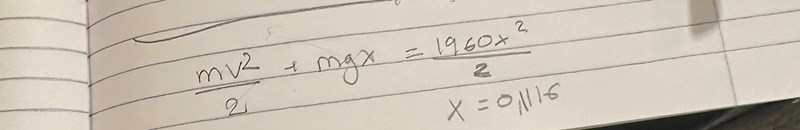 mv²/2 + mgx = 1960x²/2
x = 0,1116